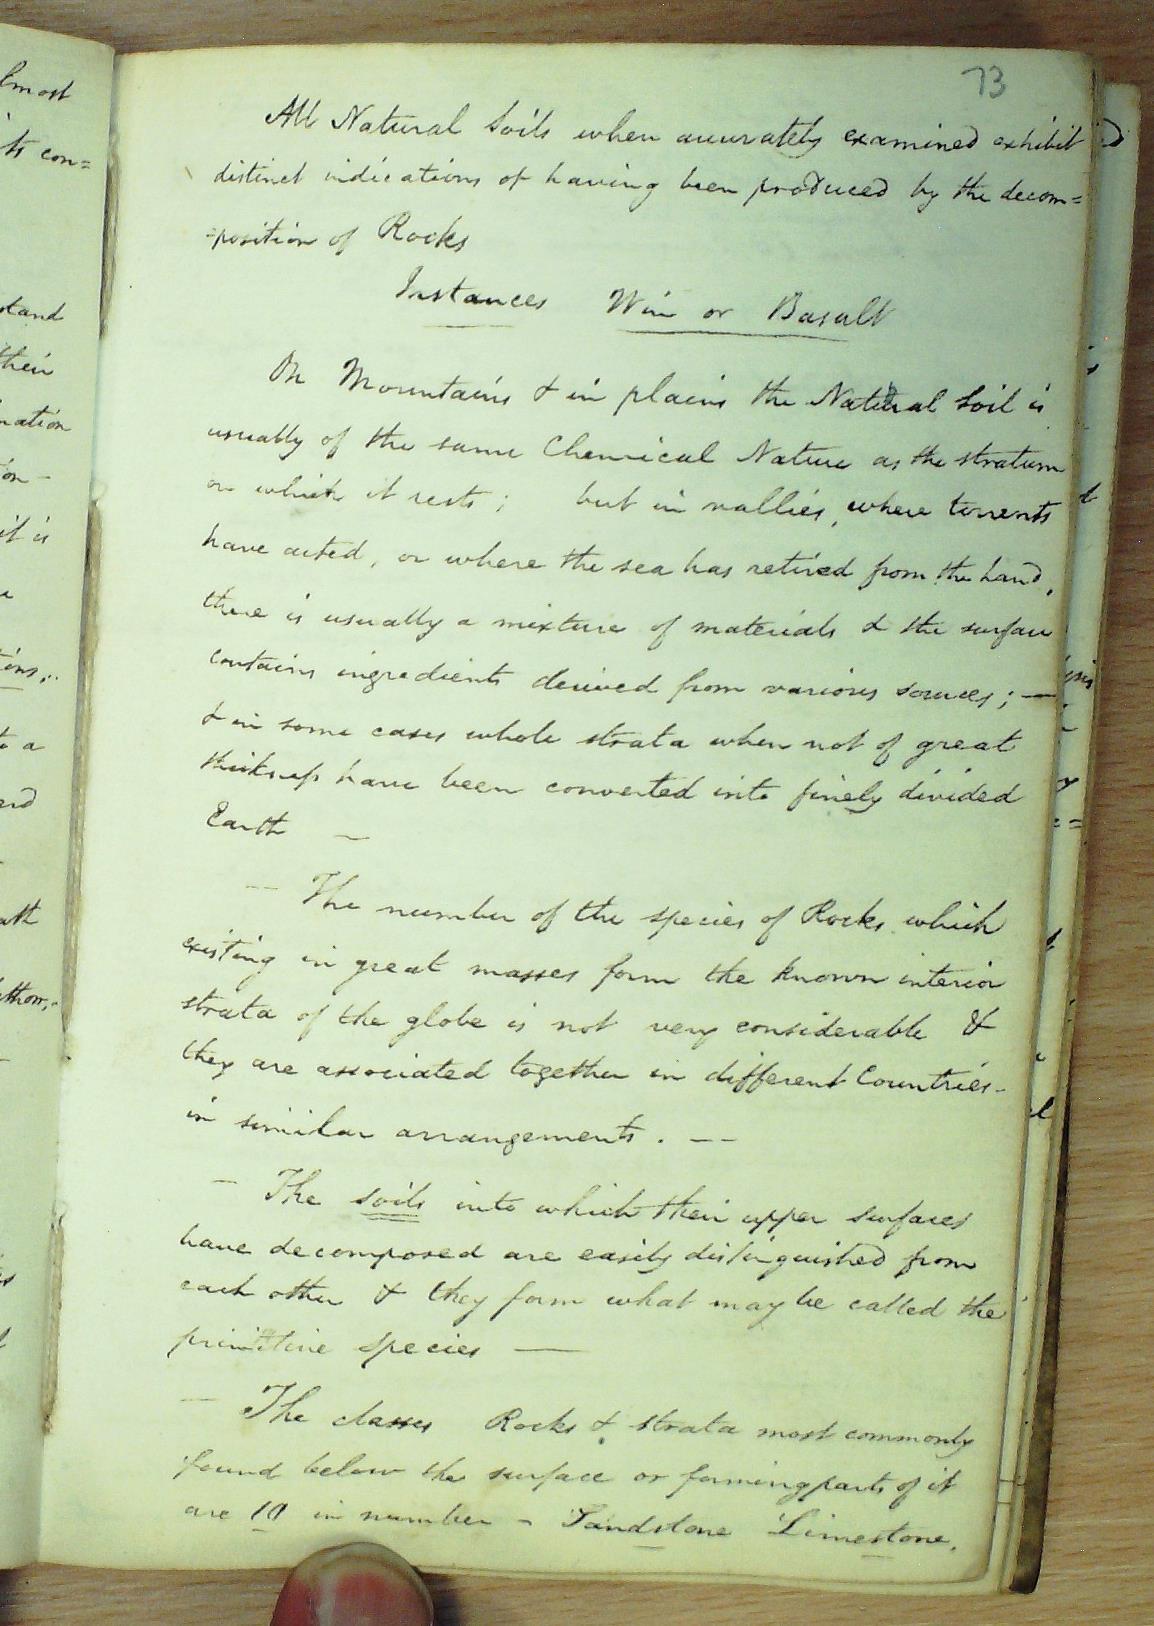 73
All Natural Soils when accurately examined exhibit
distinct indications of having been produced by the decom=
=position of Rocks
Instances Win or Basalt
On Mountains & in plains the Natural Soil is
usually of the same Chemical Nature as the stratum
on which it rests; but in vallies, where torrents
have acted, or where the sea has retired from the hand,
there is usually a mixture of materials & the surface
contains ingredients derived from various sources; —
& in some cases whole strata when not of great
thickness have been converted into finely divided
Earth —
— The number of the species of Rocks which
existing in great masses form the known interior
strata of the globe is not very considerable &
they are associated together in different Countries -
in similar arrangements. — —
— The soils into which their upper surfaces
have decomposed are easily distinguished from
each other & they form what may be called the
primitive species —
— The classes Rocks & strata most commonly
found below the surface or forming parts of it
are 10 in number - Sandstone Limestone.
lmost
ts con=
stand
their
nation
ion -
it is
to a